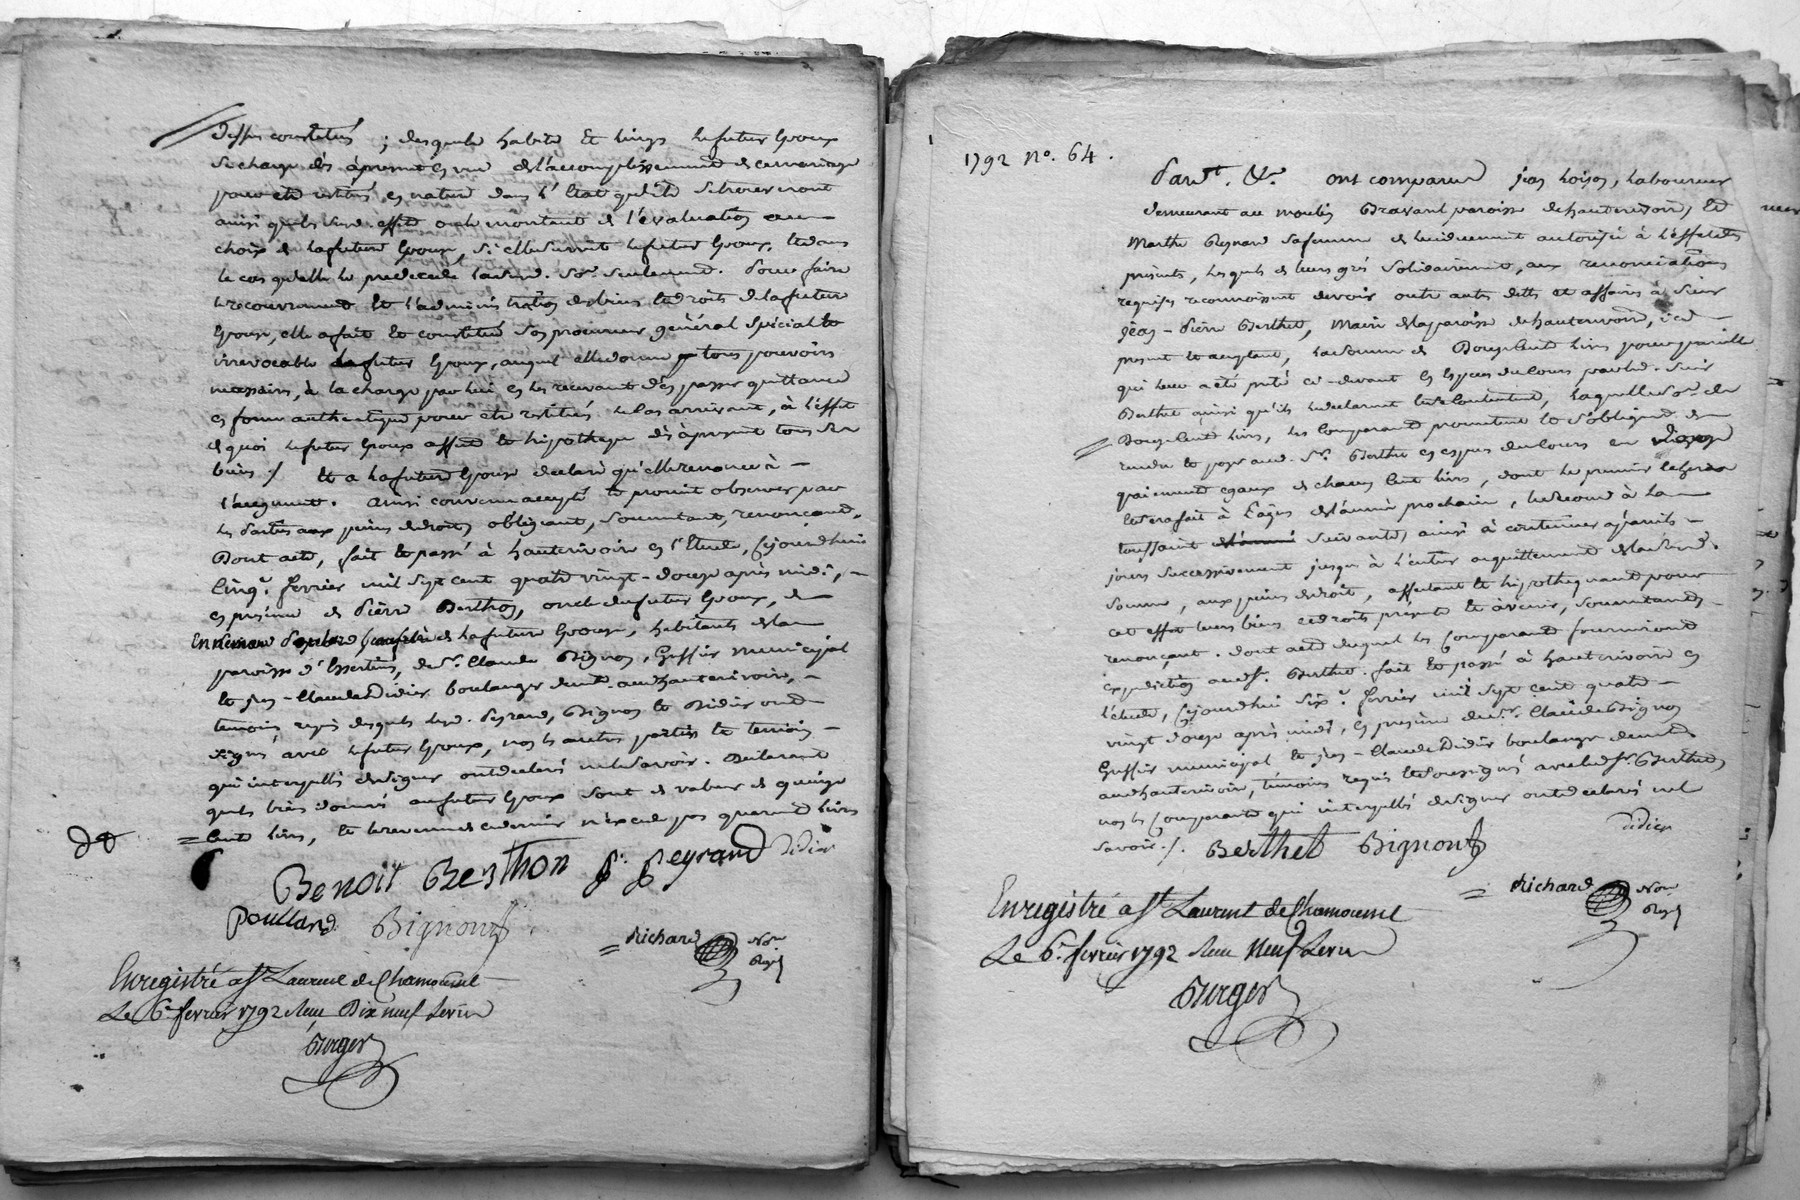 dessus constitués ; desquels habits et linges le futur époux
se charge dès à présent en vue de l'accomplissement de ce mariage
pour être restitués en nature dans l'état qu'ils se trouveront
ou le montant de l'évaluation au
choix de la future épouse, si elle survit le futur époux, et dans
le cas qu'elle le prédécède seulement. Pour faire
le recouvrement et l'administration des biens et droits de la future
épouse, elle a fait et constitué son procureur général spécial et
irrévocable le futur époux, auquel elle donne tous pouvoirs
nécessaires, à la charge par lui en les recevant d'en passer quittance
en forme authentique pour être restitués le cas arrivant, à l'effet
de quoi le futur époux affecte et hypothèque dès à présent tous ses
biens ./. et a la future épouse déclaré qu'elle renonce à
l'augment. Ainsi convenu accepté et promit observer par
les parties aux peines de droit, obligeant, soumettant, renonçant,
Dont acte, fait et passé à hauterivoire en l'Etude, cejourdhuit
cinq.e fevrier mil sept cent quatre vingt-douze après midi,
en présence de Pierre Berthon, oncle du futur époux, de
de la future épouse, habitants de la
paroisse d'Essertines, de s.r Claude Bignon, Greffier municipal
et jean-Claude Didier boulanger dem.t aud. hauterivoire,
témoins requis desquels led. Peyrand, Bignon et Didier ont
signé avec le futur époux, non les autres parties et témoins
qui interpellés de signer ont déclaré ne le savoir. Déclarant
que les biens donnés au futur époux sont de valeur de quinze
cent livres, et le revenu de ce dernier n'excède pas quarante livres
Benoit Berthon P. Peyrand Didier
Poullard Bignon
Richard Not.re Roy.l
Enregistré a St Laurent de Chamousset
Le 6 fevrier 1792 Reçu Dix neuf
Burger
1792 N°. 64.
Pard.t &.a ont comparu jean loison, laboureur
demeurant au moulin Bravant paroisse de hauterivoire, et
Marthe Peynard sa femme de lui duement autorisée à l'effet des
présentes, lesquels de leurs grés solidairement, aux renonciations
requises reconnoissent devoir outre autres dettes et affaires à sieur
jean-Pierre Berthet, Maire de la paroisse de hauterivoire, ici
present et acceptant, la somme de Douze cent livres pour pareille
qui leur a été prêté ci-devant en espèces de cours par led. sieur
Berthet ainsi qu'ils le déclarent et s'en contentent, laquelle somme de
Douze cent livres, les comparants promettent et s'obligent de
rendre et payer aud. s.r Berthet en espèces de cours en douze
paiements égaux de chacun cent livres, dont le premier
et sera fait à Pâques de l'année prochaine, le second à la
toussaint suivante, ainsi à continuer à pareils
jours successivement jusqu'à l'entier acquittement de lad.
somme, aux peines de droit, affectant et hypothequant pour
cet effet leurs biens et droits présents et à venir, soumettant,
renonçant. Dont acte duquel les comparants fourniront
expédition aud. s.r Berthet. fait et passé à hauterivoire en
l'étude, cejourdhui six.e fevrier mil sept cent quatre
vingt douze après midi, en présence de s.r Claude Bignon
Greffier municipal et jean-Claude Didier boulanger dem.t
aud. hauterivoire, témoins requis et soussignés avec led. s.r Berthet,
non les comparants qui interpellés de signer ont déclaré ne le
savoir ./. Berthet Bignon Didier
Richard Not.re Roy.l
Enregistré a St Laurent de Chamousset
Le 6 fevrier 1792 Reçu Neuf
Burger